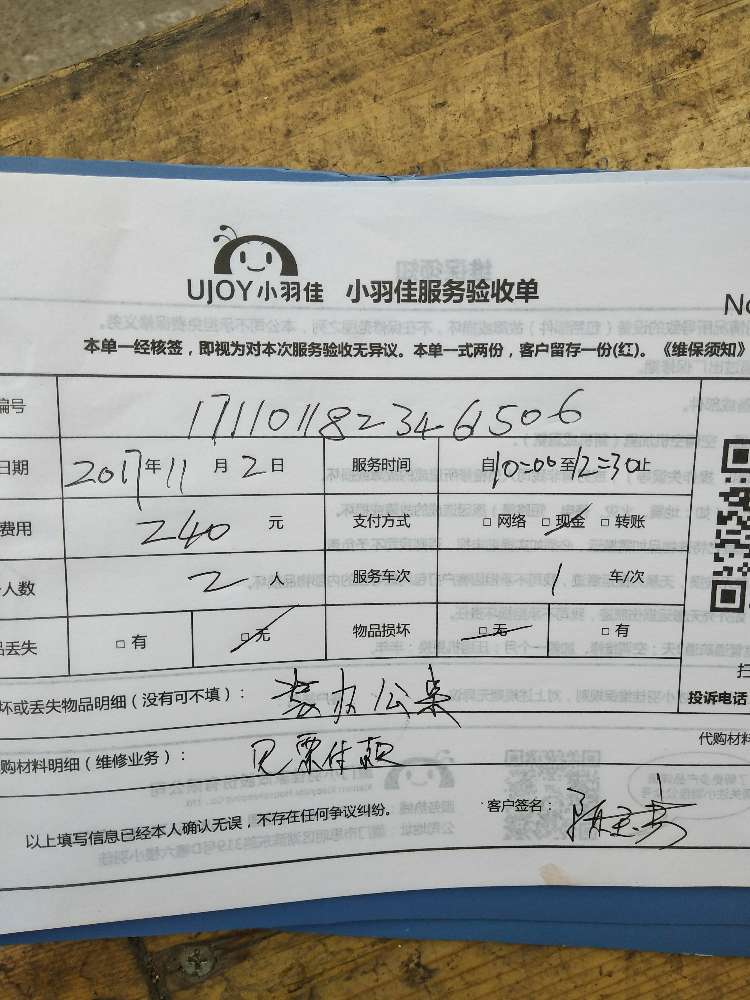 UJOY小羽佳 小羽佳服务验收单
No
本单一经核签，即视为对本次服务验收无异议。本单一式两份，客户留存一份(红)。《维保须知》
编号 171101182346506
日期 2017年11月2日 服务时间 自10=00至12=30止
费用 240元 支付方式 □网络 □现金 □转账
人数 2人 服务车次 1车/次
品丢失 □有 □无 物品损坏 □无 □有
坏或丢失物品明细（没有可不填）： 装办公桌
投诉电话
购材料明细（维修业务）： 见票付款
代购材料
以上填写信息已经本人确认无误，不存在任何争议纠纷。 客户签名：